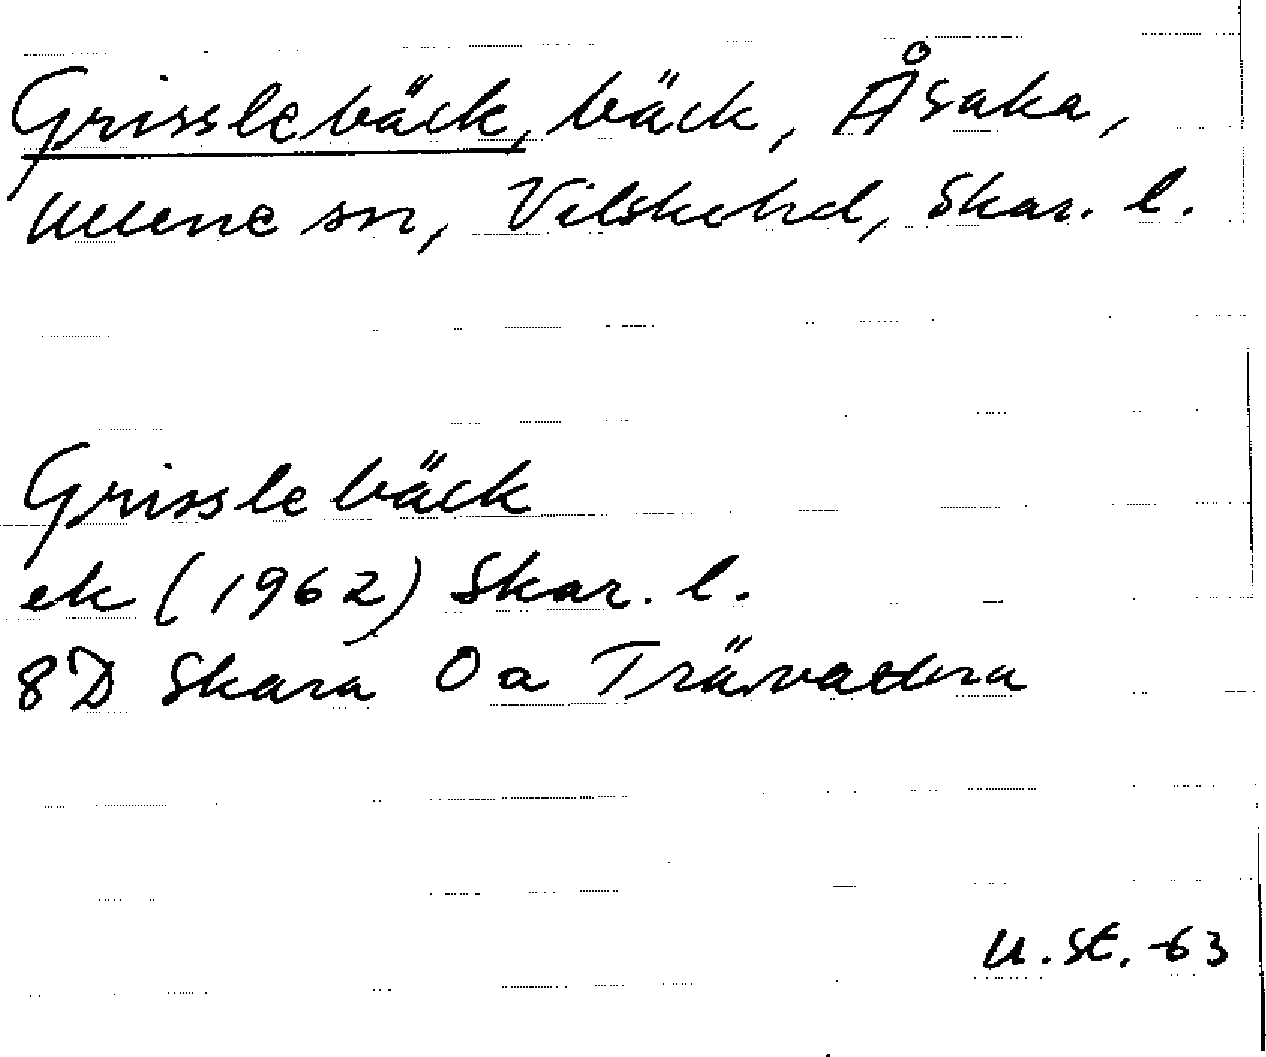 Grisslebäck, bäck, Åsaka,
Ullene sn, Vilske hd, Skar. l.
Grisslebäck
ek (1962) Skar. l.
8D Skara 0a Trävattna
U. St. -63